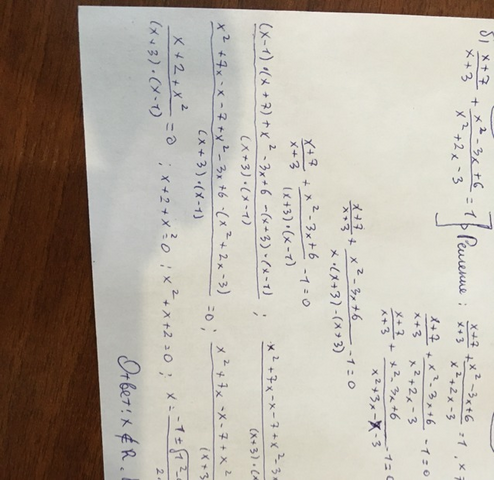 б) (x+7)/(x+3) + (x²-3x+6)/(x²+2x-3) = 1 Решение: (x+7)/(x+3) + (x²-3x+6)/(x²+2x-3) = 1, x
(x+7)/(x+3) + (x²-3x+6)/(x²+2x-3) - 1 = 0
(x+7)/(x+3) + (x²-3x+6)/(x²+3x-x-3) - 1 = 0
(x+7)/(x+3) + (x²-3x+6)/(x·(x+3)-(x+3)) - 1 = 0
(x+7)/(x+3) + (x²-3x+6)/((x+3)·(x-1)) - 1 = 0
((x-1)·(x+7)+x²-3x+6-(x+3)·(x-1))/((x+3)·(x-1)) ; (x²+7x-x-7+x²-3x
(x+3)·(x
(x²+7x-x-7+x²-3x+6-(x²+2x-3))/((x+3)·(x-1)) = 0 ; (x²+7x-x-7+x²
(x+3
(x+2+x²)/((x+3)·(x-1)) = 0 ; x+2+x²=0 ; x²+x+2=0 ; x = (-1±√1²
2·
Ответ: x∉R.